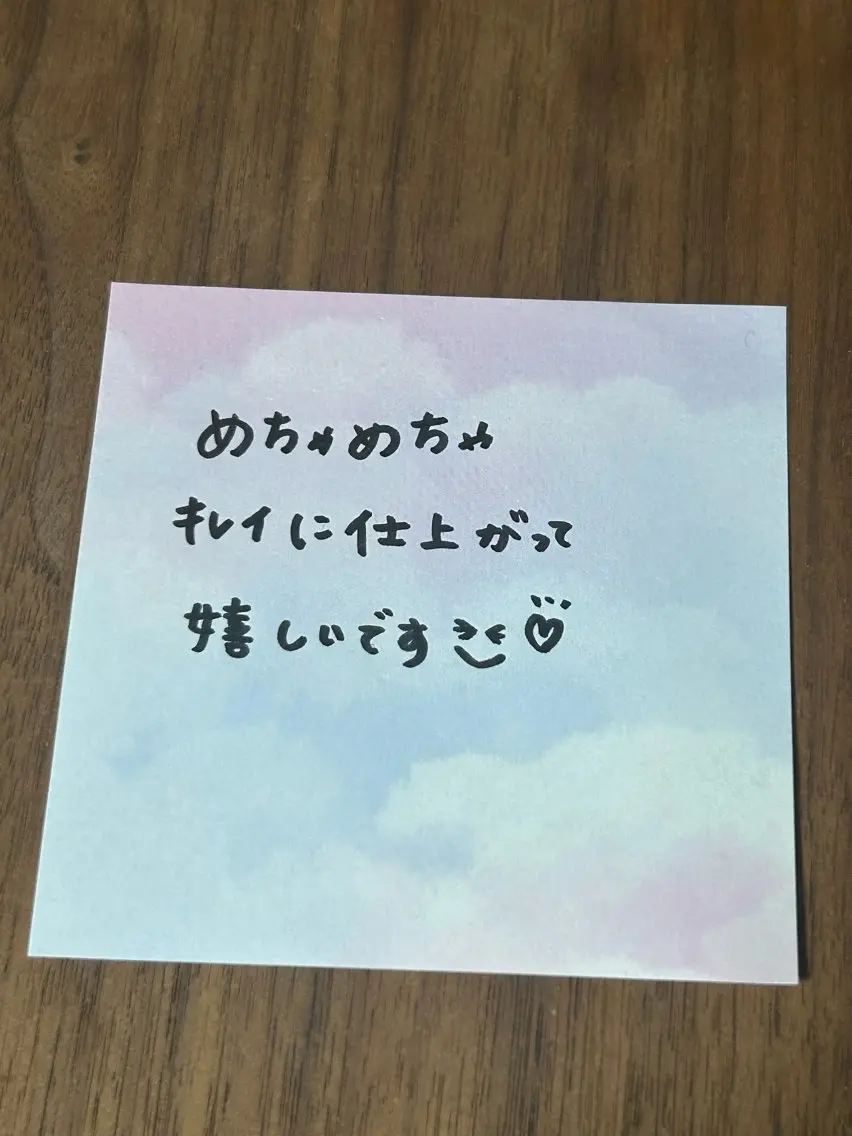 めちゃめちゃ
キレイに仕上がって
嬉しいです♡